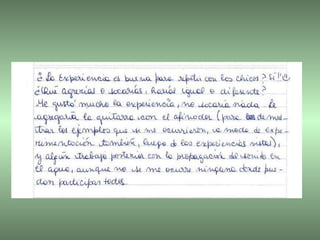 ¿La experiencia es buena para repetir con los chicos? Sí!!
¿Qué agregarías o sacarías, harías igual o diferente?
Me gustó mucho la experiencia, no sacaría nada. Le
agregaría la guitarra con el afinador (para demos-
trar los ejemplos que se me ocurrieron, a modo de expe-
rimentación también, luego de las experiencias vistas),
y algún trabajo posterior con la propagación del sonido en
el agua, aunque no se me ocurre ninguna donde pue-
dan participar todos.